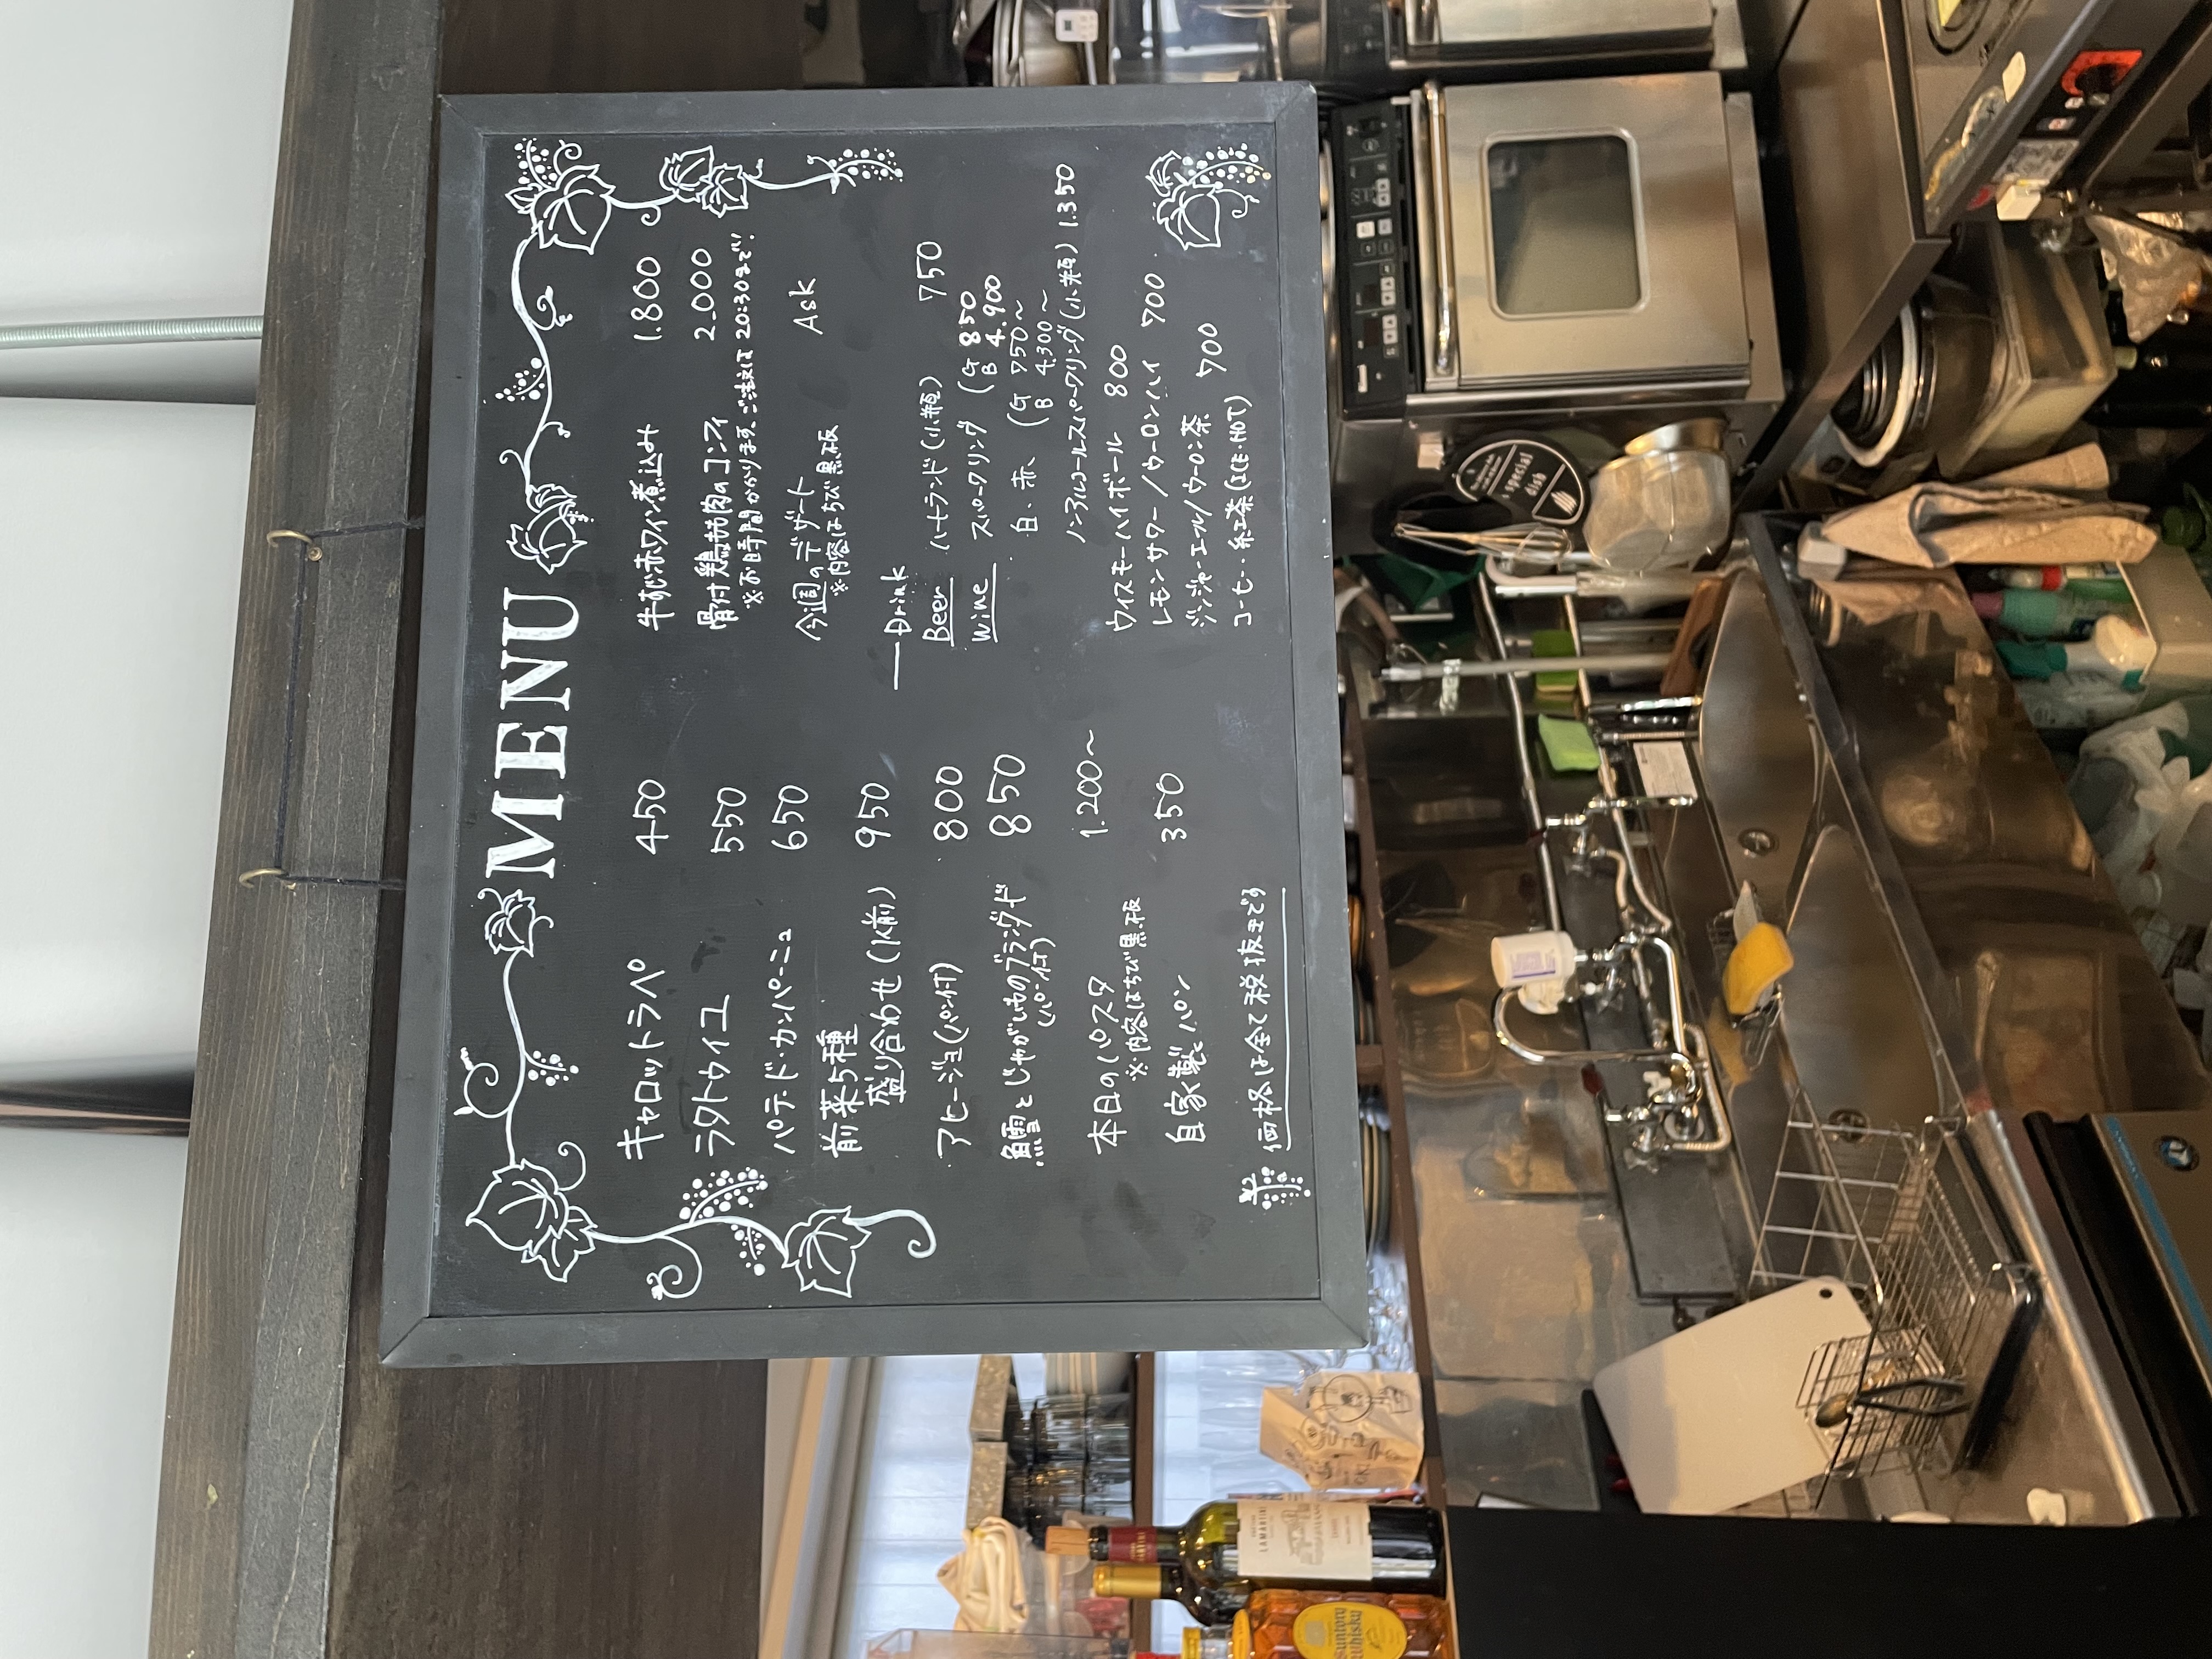 MENU
キャロットラペ 450
ラタトゥイユ 550
パテ・ド・カンパーニュ 650
前菜5種
盛り合わせ (1人前) 950
アヒージョ (パン付) 800
鱈とじゃがいものブランダード 850
(パン付)
本日のパスタ 1.200〜
※内容はちび黒板
自家製パン 350
価格は全て税抜きです
牛すじ赤ワイン煮込み 1.800
骨付鶏もも肉のコンフィ 2.000
※お時間かかります。ご注文は20:30まで!
今週のデザート Ask
※内容はちび黒板
Drink
Beer ハートランド (小瓶) 750
Wine スパークリング (G 850
B 4.900
白・赤 (G 750〜
B 4.300〜
ノンアルコールスパークリング (小瓶) 1.350
ウィスキーハイボール 800
レモンサワー/ウーロンハイ 700
ジンジャーエール/ウーロン茶 700
コーヒー・紅茶 (ICE・HOT)
special
dish
LAMARTINE
Suntory
Whisky